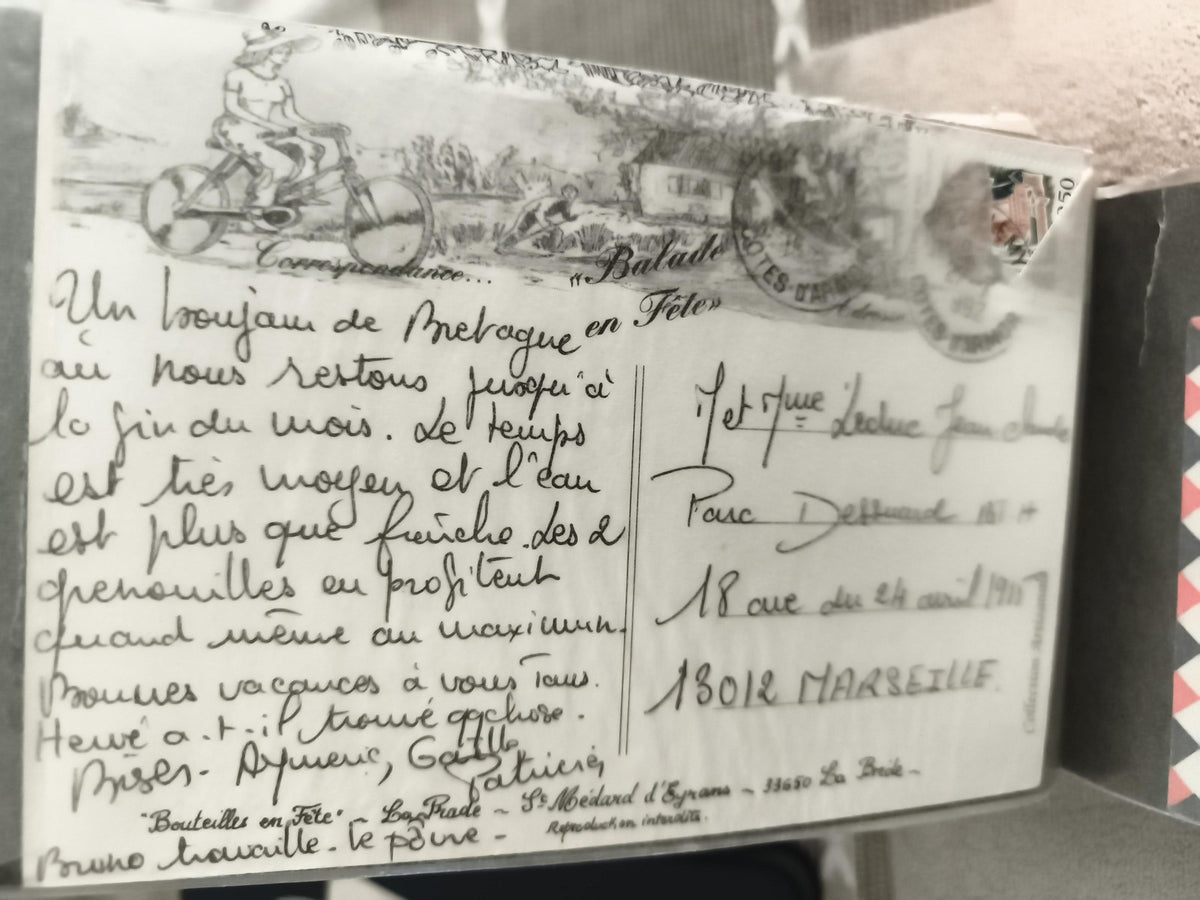 Correspondance...
«Balade
en Fête»
CÔTES-D'ARMOR
CÔTES-D'ARMOR
Un bonjour de Bretagne
où nous restons jusqu'à
la fin du mois. Le temps
est très moyen et l'eau
est plus que fraîche. Les 2
grenouilles en profitent
quand même au maximum.
Bonnes vacances à vous Tous.
Hervé a-t-il trouvé qqchose.
Bises - Aymeric, Gaëlle
Patricia,
Bruno travaille - le pôvre -
M et Mme Leduc Jean Claude
Parc
18 rue du 24 avril
13012 MARSEILLE
"Bouteilles en Fête" - La Prade - St Médard d'Eyrans - 33650 La Brède -
Reproduction interdite.
Collection